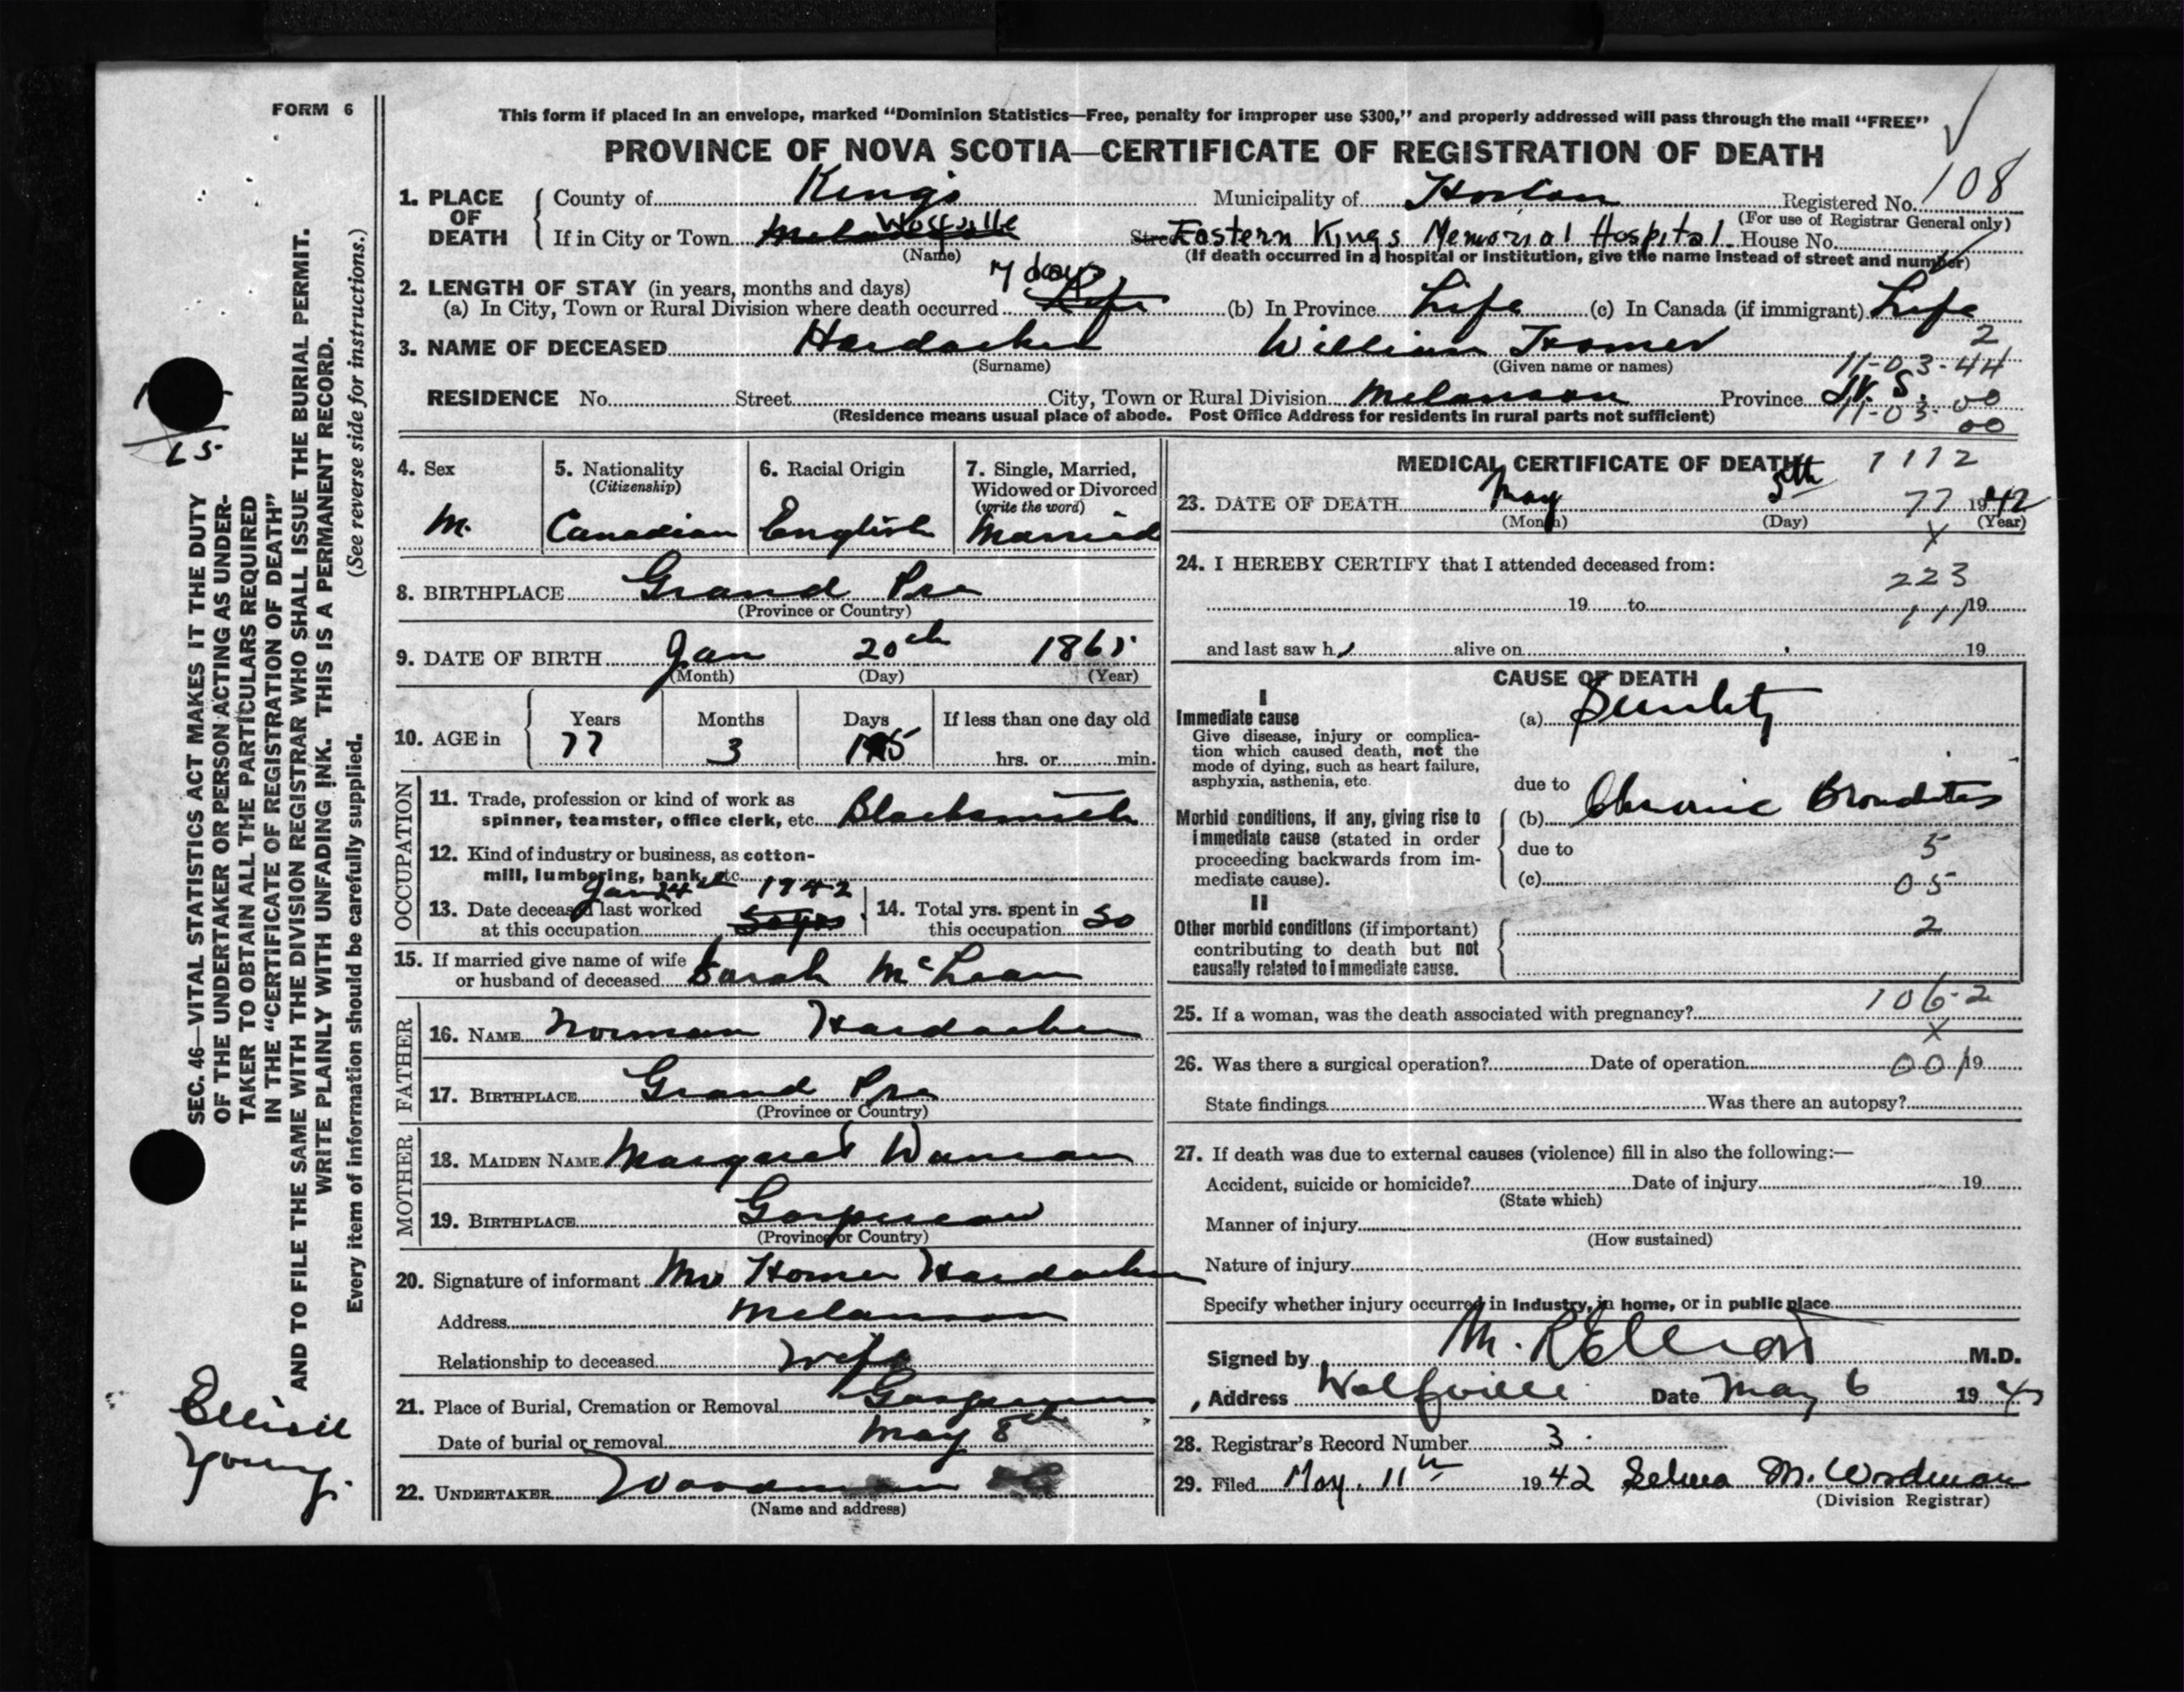 FORM 6
This form if placed in an envelope, marked "Dominion Statistics—Free, penalty for improper use $300," and properly addressed will pass through the mail "FREE"
PROVINCE OF NOVA SCOTIA—CERTIFICATE OF REGISTRATION OF DEATH
1. PLACE OF DEATH
County of Kings Municipality of Horton Registered No. 108
(For use of Registrar General only)
If in City or Town Wolfville Street Eastern Kings Memorial Hospital House No.
(Name) (If death occurred in a hospital or institution, give the name instead of street and number)
2. LENGTH OF STAY (in years, months and days) 7 days
(a) In City, Town or Rural Division where death occurred Life (b) In Province Life (c) In Canada (if immigrant) Life
3. NAME OF DECEASED Hardacker William Homer 2
(Surname) (Given name or names) 11-03-44
RESIDENCE No. Street City, Town or Rural Division Melanson Province N. S.
(Residence means usual place of abode. Post Office Address for residents in rural parts not sufficient) 11-03-00
00
4. Sex M.
5. Nationality (Citizenship) Canadian
6. Racial Origin English
7. Single, Married, Widowed or Divorced (write the word) Married
8. BIRTHPLACE Grand Pre
(Province or Country)
9. DATE OF BIRTH Jan 20th 1865
(Month) (Day) (Year)
10. AGE in Years 77 Months 3 Days 15 If less than one day old hrs. or min.
OCCUPATION
11. Trade, profession or kind of work as spinner, teamster, office clerk, etc. Blacksmith
12. Kind of industry or business, as cotton-mill, lumbering, bank, etc.
13. Date deceased last worked at this occupation Jan 24th 1942
14. Total yrs. spent in this occupation 50
15. If married give name of wife or husband of deceased Sarah McLean
FATHER
16. NAME Norman Hardacker
17. BIRTHPLACE Grand Pre
(Province or Country)
MOTHER
18. MAIDEN NAME Margaret Duncan
19. BIRTHPLACE Gaspereau
(Province or Country)
20. Signature of informant Mrs Homer Hardacker
Address Melanson
Relationship to deceased Wife
21. Place of Burial, Cremation or Removal Gaspereau
Date of burial or removal May 8th
22. UNDERTAKER Woodman
(Name and address)
MEDICAL CERTIFICATE OF DEATH 1112
23. DATE OF DEATH May 5th 77 1942
(Month) (Day) (Year)
X
24. I HEREBY CERTIFY that I attended deceased from:
223
19 to 19
111
and last saw h alive on 19
CAUSE OF DEATH
I
Immediate cause
Give disease, injury or complication which caused death, not the mode of dying, such as heart failure, asphyxia, asthenia, etc.
(a)
due to
Morbid conditions, if any, giving rise to immediate cause (stated in order proceeding backwards from immediate cause).
(b) Chronic Bronchitis
due to 5
(c) 05
II
Other morbid conditions (if important) contributing to death but not causally related to immediate cause.
2
106-2
25. If a woman, was the death associated with pregnancy?
X
26. Was there a surgical operation? Date of operation 00 19
State findings Was there an autopsy?
27. If death was due to external causes (violence) fill in also the following:—
Accident, suicide or homicide? Date of injury 19
(State which)
Manner of injury
(How sustained)
Nature of injury
Specify whether injury occurred in Industry, in home, or in public place
Signed by M. R Elliott M.D.
Address Wolfville Date May 6 19
28. Registrar's Record Number 3
29. Filed May. 11th 1942 Selma M. Woodman
(Division Registrar)
SEC. 46—VITAL STATISTICS ACT MAKES IT THE DUTY
OF THE UNDERTAKER OR PERSON ACTING AS UNDER-
TAKER TO OBTAIN ALL THE PARTICULARS REQUIRED
IN THE "CERTIFICATE OF REGISTRATION OF DEATH"
AND TO FILE THE SAME WITH THE DIVISION REGISTRAR WHO SHALL ISSUE THE BURIAL PERMIT.
WRITE PLAINLY WITH UNFADING INK. THIS IS A PERMANENT RECORD.
Every item of information should be carefully supplied. (See reverse side for instructions.)
Young.